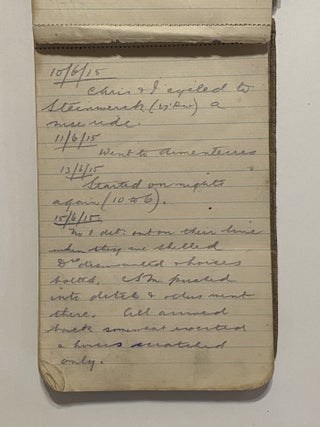 10/6/15
Chris & I cycled to
Steenwerck (27 Div) a
nice ride.
11/6/15
Went to Armentieres
13/6/15
Started on nights
again (10 to 6).
15/6/15
No 1 det. out on their line
when they were shelled
Drs dismounted & horses
bolted. pushed
into ditch & others went
there. All arrived
back somewhat excited
& horses scratched
only.